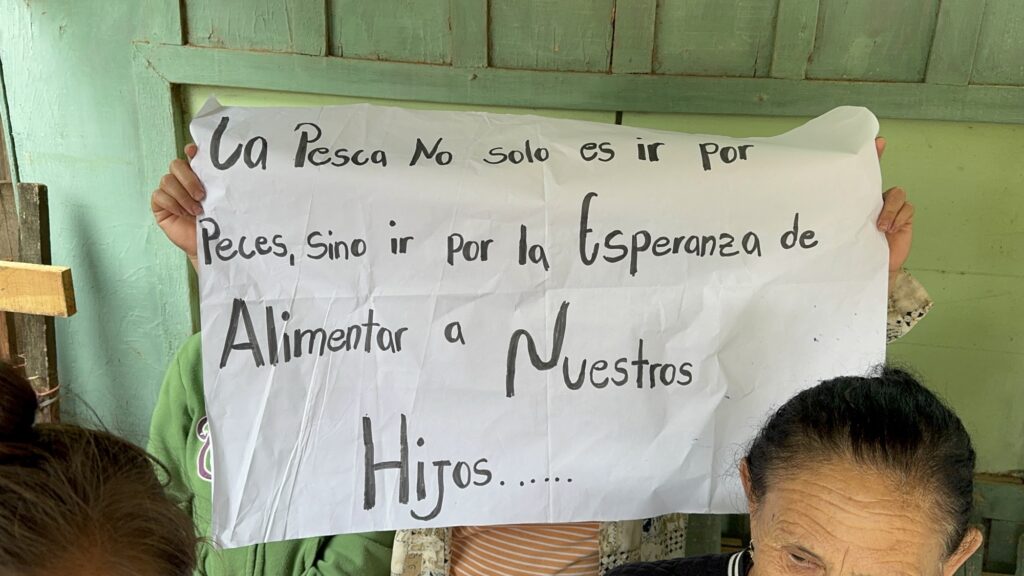 La Pesca No solo es ir por
Peces, sino ir por la Esperanza de
Alimentar a Nuestros
Hijos......